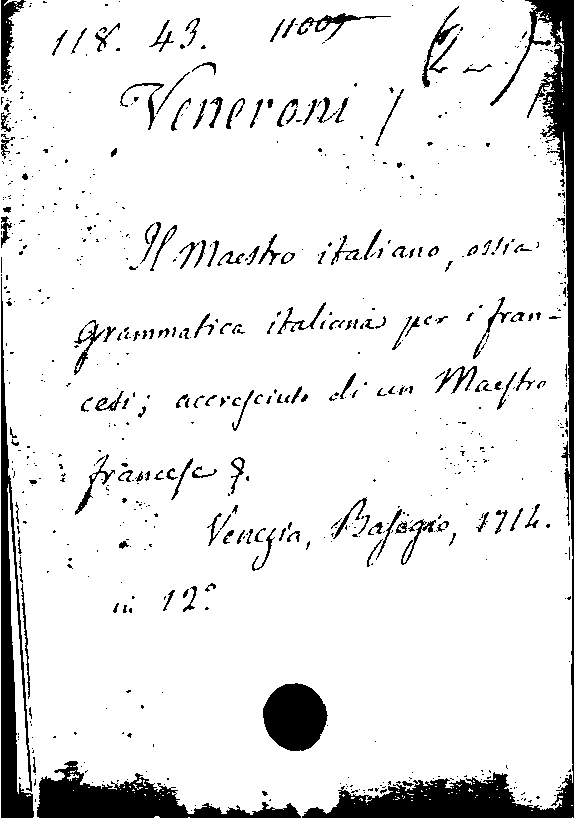 118. 43. 11009 (2 _ )
Veneroni /
Il Maestro italiano, ossia
grammatica italiana per i fran-
cesi; accresciuto di un Maestro
francese &.
Venezia, Basegio, 1714.
in 12°